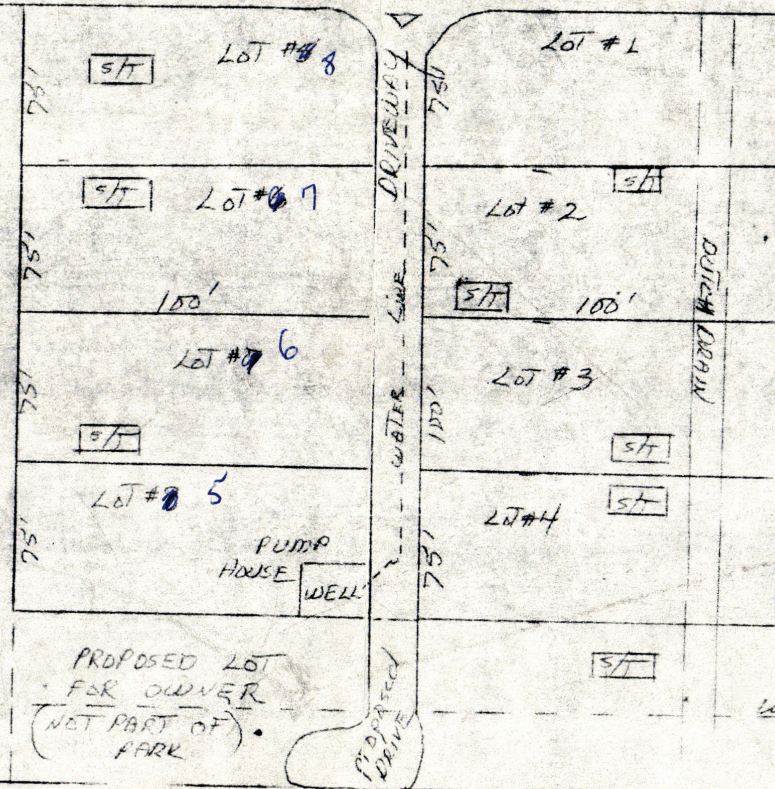 LOT # 8
S/T
75'
LOT # 7
S/T
75'
100'
LOT # 6
75'
S/T
LOT # 5
75'
PUMP
HOUSE
WELL
PROPOSED LOT
FOR OWNER
(NOT PART OF)
PARK
DRIVEWAY
WATER LINE
PROPOSED
DRIVE
LOT #1
75'
LOT #2
S/T
75'
S/T
100'
LOT #3
100'
S/T
LOT #4
S/T
75'
S/T
DUTCH DRAIN